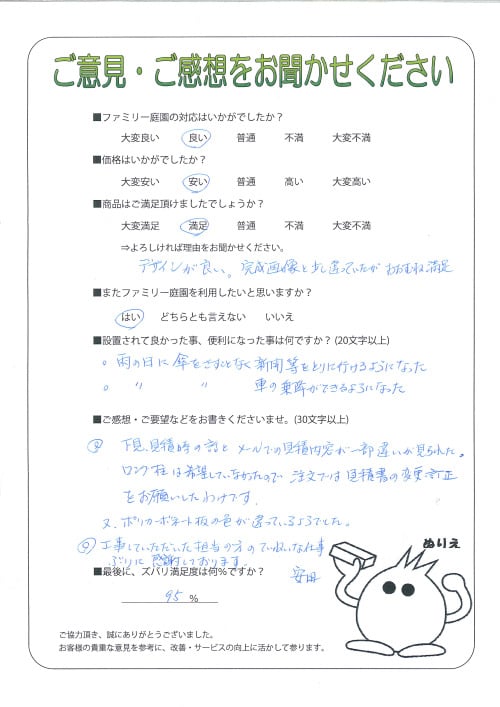 ご意見・ご感想をお聞かせください
■ファミリー庭園の対応はいかがでしたか？
大変良い 良い 普通 不満 大変不満
■価格はいかがでしたか？
大変安い 安い 普通 高い 大変高い
■商品はご満足頂けましたでしょうか？
大変満足 満足 普通 不満 大変不満
⇒よろしければ理由をお聞かせください。
デザインが良い。完成画像と少し違っていたが おおむね満足
■またファミリー庭園を利用したいと思いますか？
はい どちらとも言えない いいえ
■設置されて良かった事、便利になった事は何ですか？(20文字以上)
。雨の日に傘をさすことなく新聞等をとりに行けるようになった
。〃 〃 車の乗降ができるようになった
■ご感想・ご要望などをお書きくださいませ。(30文字以上)
下見、見積時の話とメールでの見積内容が一部違いが見られた。
ロング柱は希望していなかったので 注文では見積書の変更訂正
をお願いしたわけです。
又、ポリカーボネート板の色が違っているようでした。
工事していただいた担当の方のていねいな仕事
ぶりに感謝しております。
■最後に、ズバリ満足度は何%ですか？
95 %
安田
ぬりえ
ご協力頂き、誠にありがとうございました。
お客様の貴重な意見を参考に、改善・サービスの向上に活かして参ります。